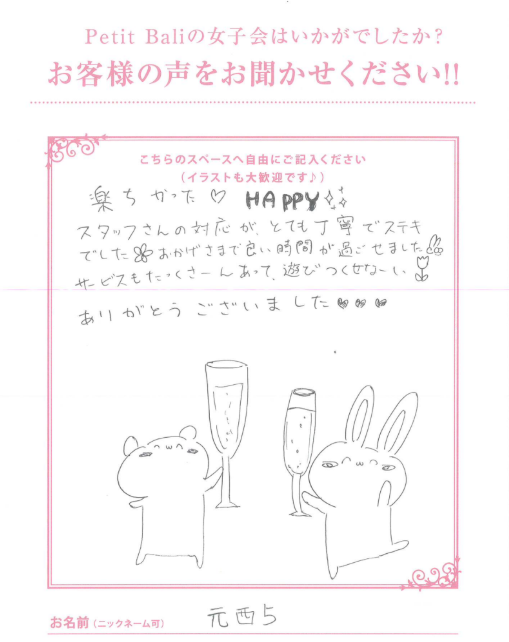 Petit Baliの女子会はいかがでしたか?
お客様の声をお聞かせください!!
こちらのスペースへ自由にご記入ください
(イラストも大歓迎です♪)
楽ちかった♡ HAPPY
スタッフさんの対応が、とても丁寧でステキ
でした おかげさまで良い時間が過ごせました
サービスもたっくさーんあって、遊びつくせなーい
ありがとうございました
お名前(ニックネーム可) 元西5